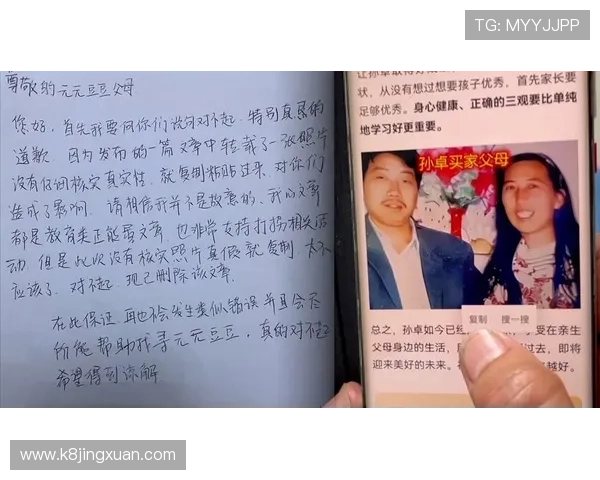 TG: MYYJJPP
尊敬的元元豆豆父母
您好,首先我要向你们说句对不起,特别真恳的
道歉。因为发布的一篇文章中转载了一张照片
没有仔细核实真实性,就复制粘贴过来,对你们
造成了影响。请相信我并不是故意的,我的文章
都是教育类正能量文章,也非常支持打拐相关活
动,但是此次没有核实照片真假就复制,太不
应该了,对不起,现已删除该文章。
在此保证,再也不会发生类似错误并且会尽
所能帮助找寻元元豆豆,真的对不起
希望得到谅解
让孙卓取得好成
状,从没有想过想要孩子优秀,首先家长要
足够优秀。身心健康、正确的三观要比单纯
地学习好更重要。
孙卓买家父母
复制 搜一搜
总之,孙卓如今已经 享受在亲生
父母身边的生活, 过去,即将
迎来美好的未来。 越好。
www.k8jingxuan.com